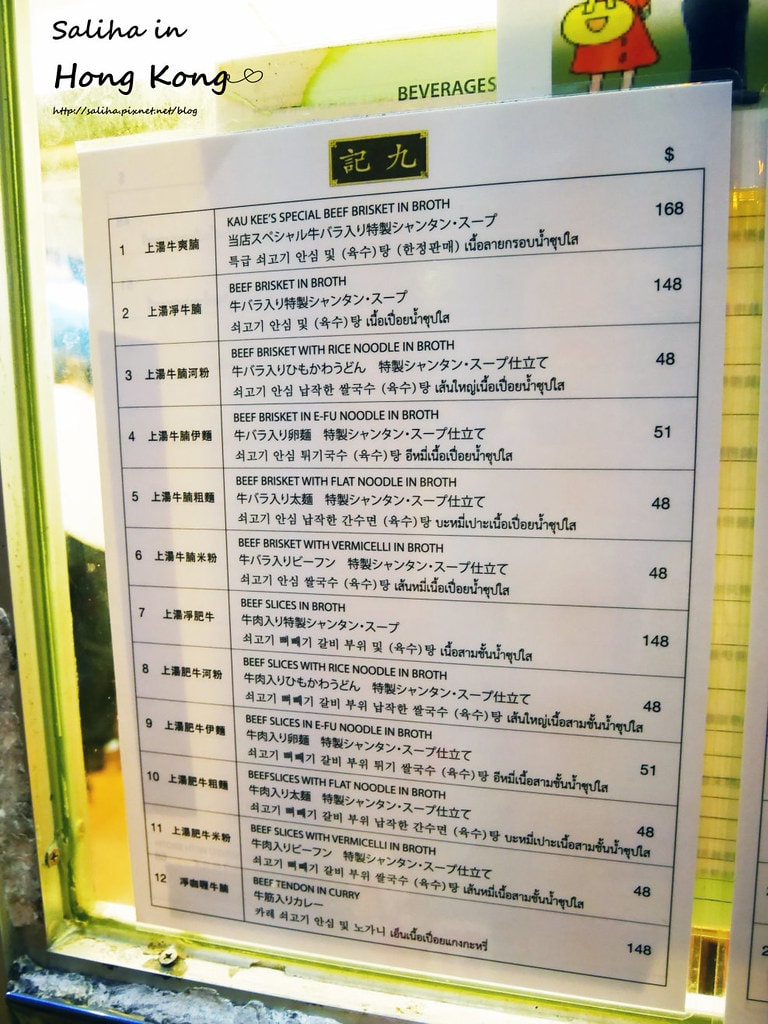 Saliha in
Hong Kong
http://saliha.pixnet.net/blog
BEVERAGES
記九
$
1 上湯牛爽腩
KAU KEE'S SPECIAL BEEF BRISKET IN BROTH
当店スペシャル牛バラ入り特製シャンタン・スープ
특급 쇠고기 안심 및 (육수)탕 (한정판매) เนื้อลายกรอบน้ำซุปใส
168
2 上湯淨牛腩
BEEF BRISKET IN BROTH
牛バラ入り特製シャンタン・スープ
쇠고기 안심 및 (육수)탕 เนื้อเปื่อยน้ำซุปใส
148
3 上湯牛腩河粉
BEEF BRISKET WITH RICE NOODLE IN BROTH
牛バラ入りひもかわうどん 特製シャンタン・スープ仕立て
쇠고기 안심 납작한 쌀국수 (육수)탕 เส้นใหญ่เนื้อเปื่อยน้ำซุปใส
48
4 上湯牛腩伊麵
BEEF BRISKET IN E-FU NOODLE IN BROTH
牛バラ入り卵麺 特製シャンタン・スープ仕立て
쇠고기 안심 튀기국수 (육수)탕 อีหมี่เนื้อเปื่อยน้ำซุปใส
51
5 上湯牛腩粗麵
BEEF BRISKET WITH FLAT NOODLE IN BROTH
牛バラ入り太麺 特製シャンタン・スープ仕立て
쇠고기 안심 납작한 간수면 (육수)탕 บะหมี่เปาะเนื้อเปื่อยน้ำซุปใส
48
6 上湯牛腩米粉
BEEF BRISKET WITH VERMICELLI IN BROTH
牛バラ入りビーフン 特製シャンタン・スープ仕立て
쇠고기 안심 쌀국수 (육수)탕 เส้นหมี่เนื้อเปื่อยน้ำซุปใส
48
7 上湯淨肥牛
BEEF SLICES IN BROTH
牛肉入り特製シャンタン・スープ
쇠고기 뼈빼기 갈비 부위 및 (육수)탕 เนื้อสามชั้นน้ำซุปใส
148
8 上湯肥牛河粉
BEEF SLICES WITH RICE NOODLE IN BROTH
牛肉入りひもかわうどん 特製シャンタン・スープ仕立て
쇠고기 뼈빼기 갈비 부위 납작한 쌀국수 (육수)탕 เส้นใหญ่เนื้อสามชั้นน้ำซุปใส
48
9 上湯肥牛伊麵
BEEF SLICES IN E-FU NOODLE IN BROTH
牛肉入り卵麺 特製シャンタン・スープ仕立て
쇠고기 뼈빼기 갈비 부위 튀기 쌀국수 (육수)탕 อีหมี่เนื้อสามชั้นน้ำซุปใส
51
10 上湯肥牛粗麵
BEEFSLICES WITH FLAT NOODLE IN BROTH
牛肉入り太麺 特製シャンタン・スープ仕立て
쇠고기 뼈빼기 갈비 부위 납작한 간수면 (육수)탕 บะหมี่เปาะเนื้อสามชั้นน้ำซุปใส
48
11 上湯肥牛米粉
BEEF SLICES WITH VERMICELLI IN BROTH
牛肉入りビーフン 特製シャンタン・スープ仕立て
쇠고기 뼈빼기 갈비 부위 쌀국수 (육수)탕 เส้นหมี่เนื้อสามชั้นน้ำซุปใส
48
12 淨咖喱牛腩
BEEF TENDON IN CURRY
牛筋入りカレー
카레 쇠고기 안심 및 노가니 เอ็นเนื้อเปื่อยแกงกะหรี่
148